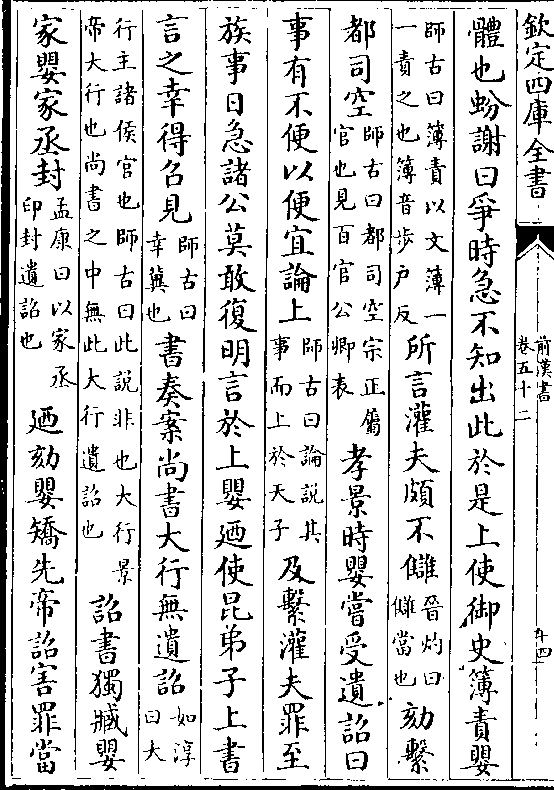 欽定四庫全書
前漢書
卷五十二
體也蚡謝曰爭時急不知出此於是上使御史簿責嬰
師古曰簿責以文簿一
一責之也簿音步户反
所言灌夫頗不讎
晉灼曰
讎當也
劾繫
都司空
師古曰都司空宗正屬
官也見百官公卿表
孝景時嬰嘗受遺詔曰
事有不便以便宜論上
師古曰論説其
事而上於天子
及繫灌夫罪至
族事日急諸公莫敢復明言於上嬰廼使昆弟子上書
言之幸得召見
師古曰
幸冀也
書奏案尚書大行無遺詔
如淳
曰大
行主諸侯官也師古曰此説非也大行景
帝大行也尚書之中無此大行遺詔也
詔書獨臧嬰
家嬰家丞封
孟康曰以家丞
印封遺詔也
廼劾嬰矯先帝詔害罪當